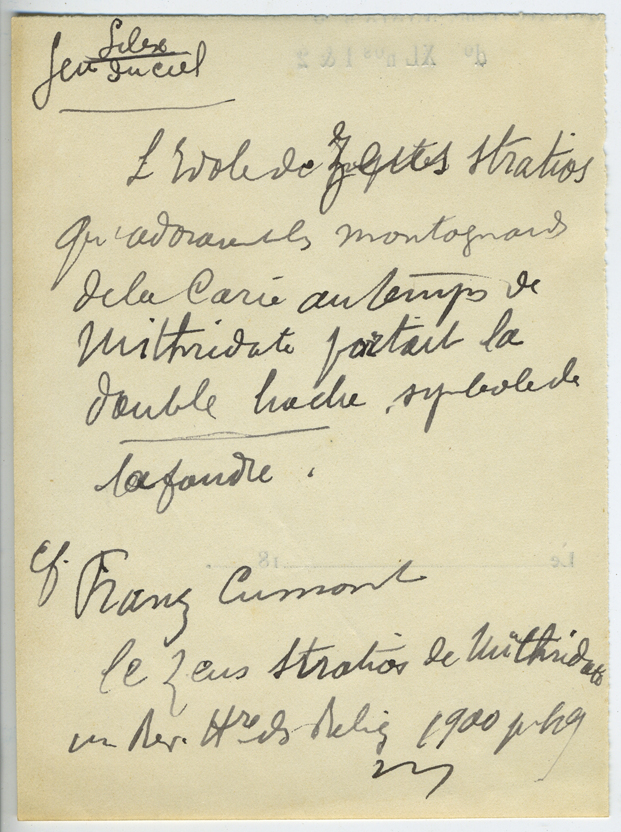 Silex
feu du ciel
L'Idole de Zeus Stratios
qu'adoraient les montagnards
de la Carie au temps de
Mithridate portait la
double hache, symbole de
la foudre.
cf. Franz Cumont
le Zeus Stratios de Mithridate
in Rev. Hre ds Relig 1900 p.